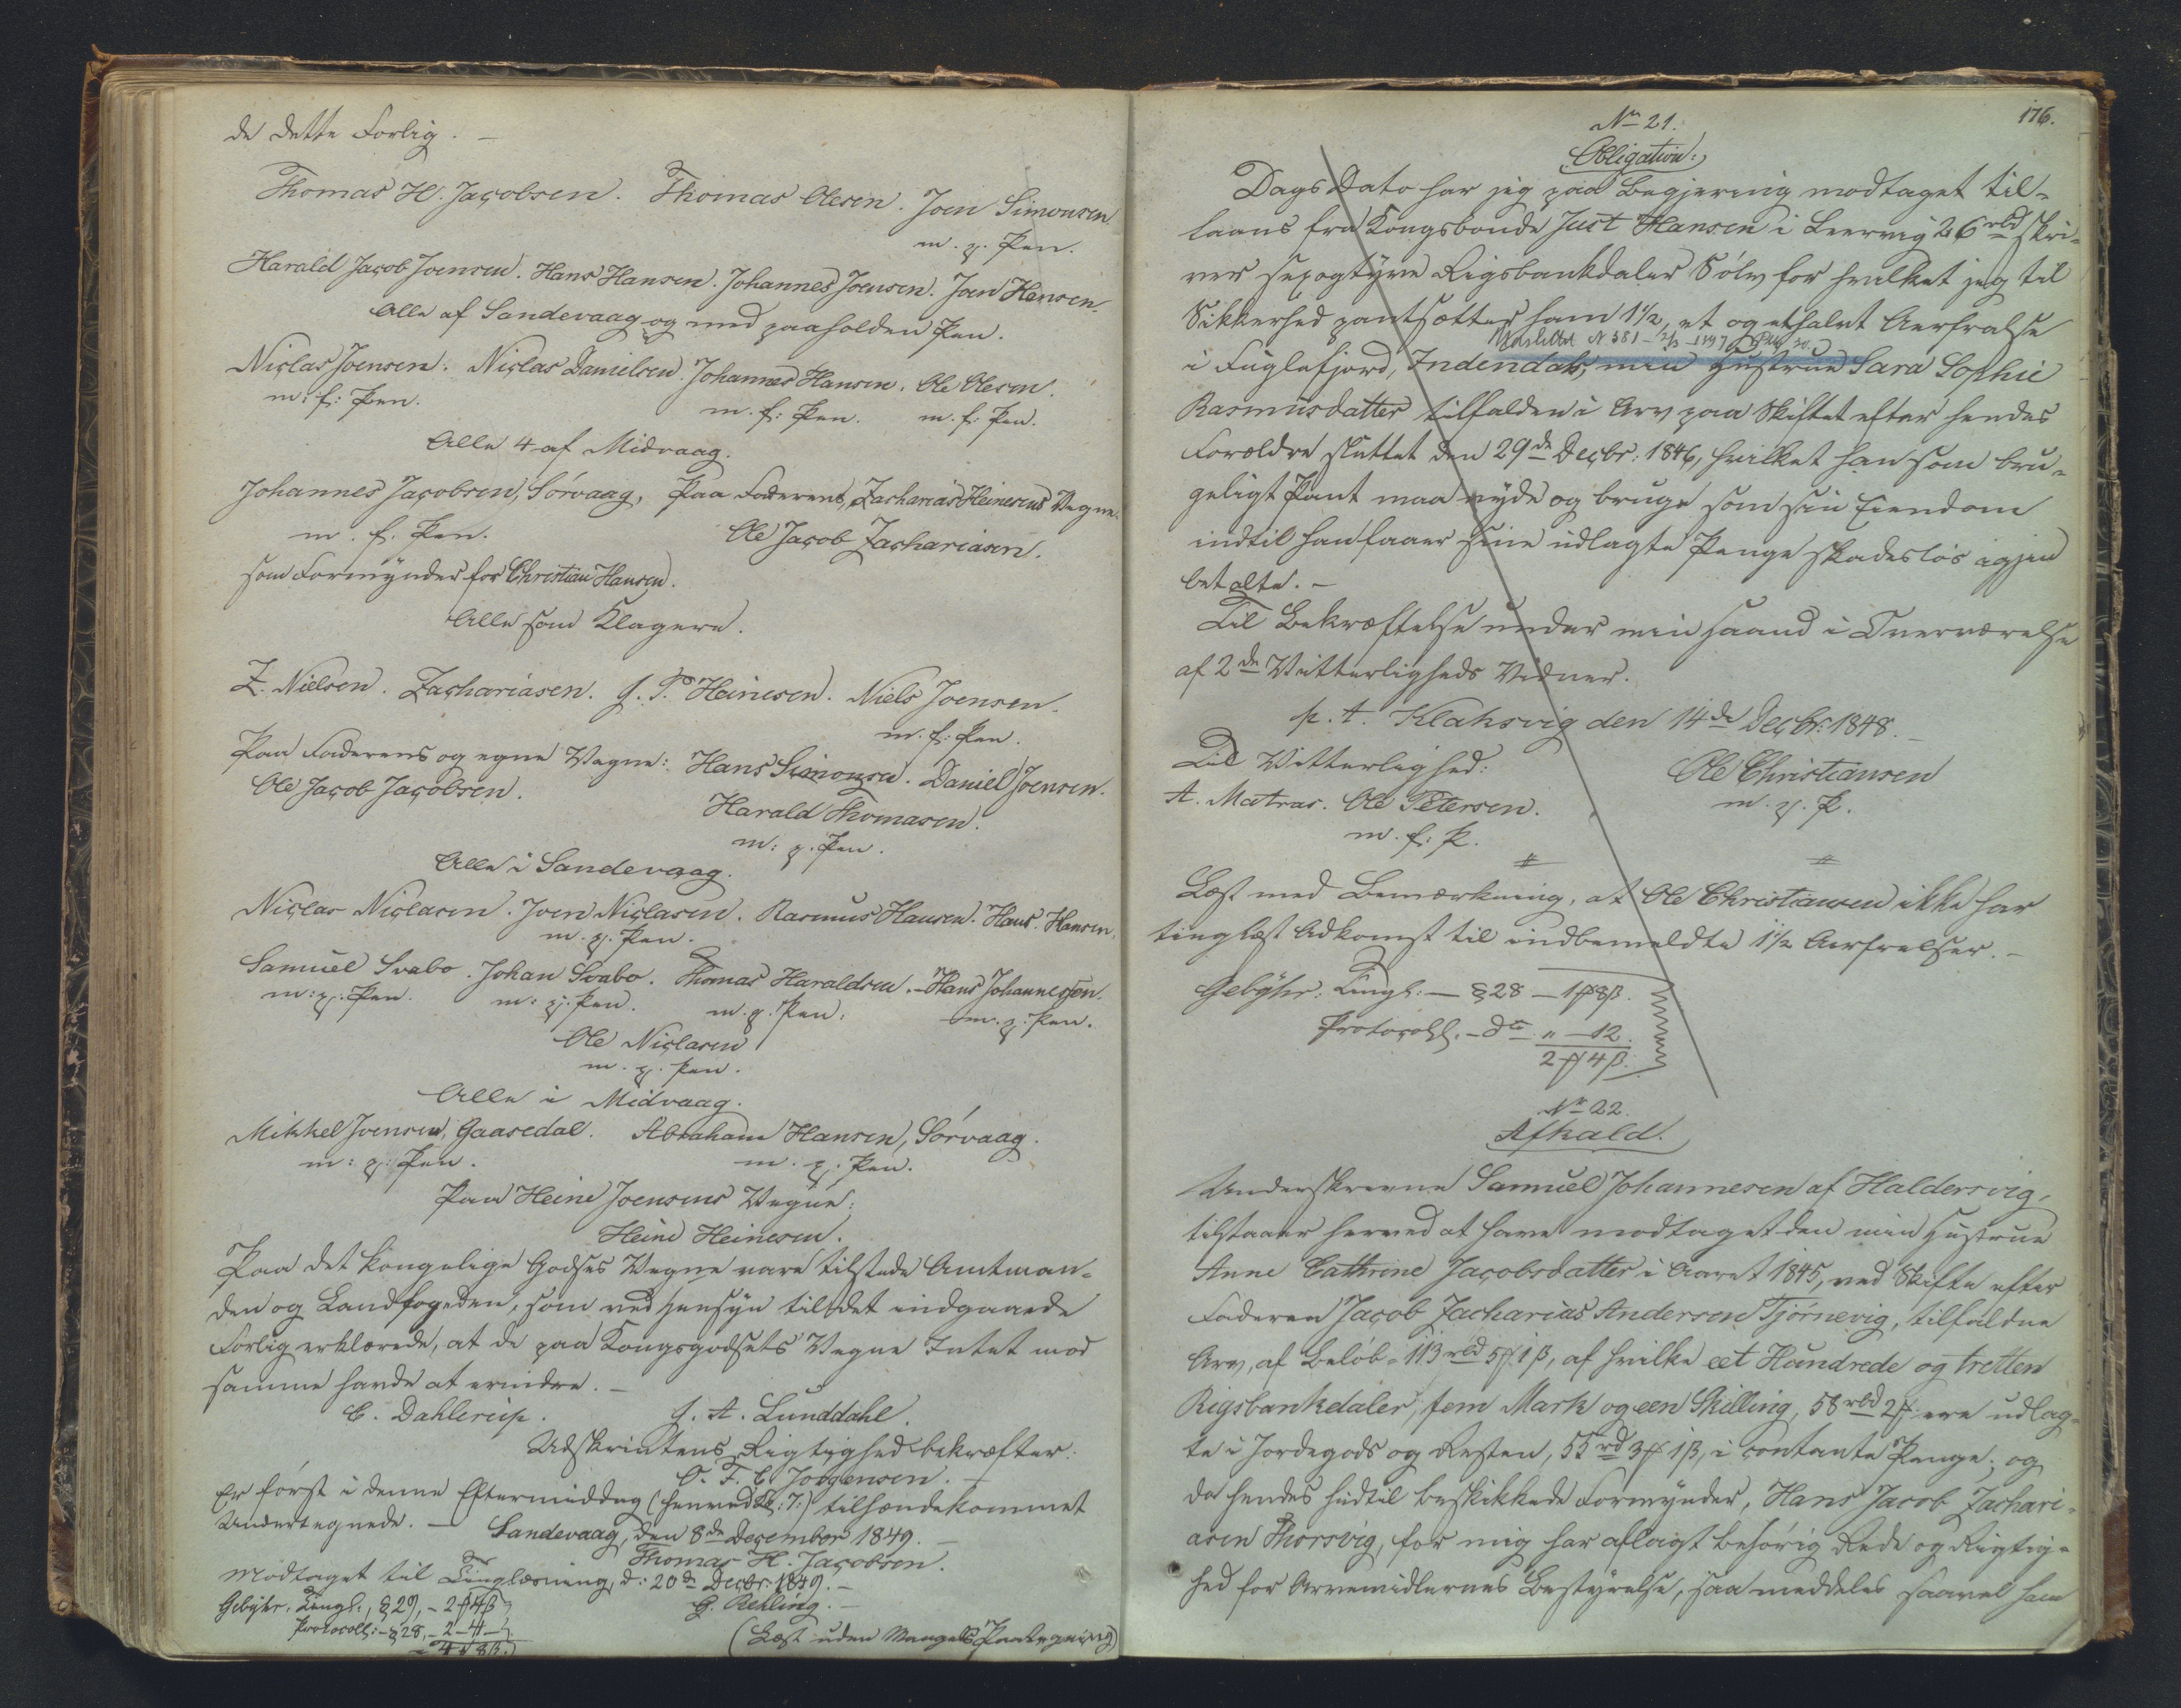 de dette Forlig. –
Thomas H. Jacobsen. Thomas Olesen. Joen Simonsen
m. p. Pen.
Harald Jacob Joensen. Hans Hansen. Johannes Joensen. Joen Hansen.
Alle af Sandevaag og med paaholden Pen.
Niclas Joensen. Niclas Danielsen. Johannes Hansen. Ole Olesen.
m: f: Pen. m. f. Pen. m. f. Pen.
Alle 4 af Midvaag.
Johannes Jacobsen, Sørvaag, Paa Faderens, Zacharias Heinesens Vegne.
m. f. Pen. Ole Jacob Zachariasen.
som Formynder for Christian Hansen.
Alle som Klagere.
Z. Nielsen. Zachariasen. J. P. Heinesen. Niels Joensen.
m. f. Pen.
Paa Faderens og egne Vegne: Hans Simonsen. Daniel Joensen.
Ole Jacob Jacobsen. Harald Thomasen.
m: p. Pen.
Alle i Sandevaag.
Niclas Niclasen. Joen Niclasen. Rasmus Hansen. Hans Hansen.
m. p. Pen.
Samuel Svabo. Johan Svabo. Thomas Haraldsen. – Hans Johannessen.
m: p. Pen. m: p. Pen. m. p. Pen. m. p. Pen.
Ole Niclasen
m. p. Pen.
Alle i Midvaag.
Mikkel Joensen, Gaasedal. Abraham Hansen, Sørvaag.
m: p: Pen. m. p. Pen.
Paa Heine Joensens Vegne:
Heine Heinesen.
Paa det kongelige Godses Vegne vare tilstede Amtman-
den og Landfogeden, som ved Hensyn til det indgaaede
Forlig erklærede, at de paa Kongsgodsets Vegne Intet mod
samme havde at erindre. –
C. Dahlerup. J. A. Lunddahl.
Udskriftens Rigtighed bekræfter:
O. F. C. Jørgensen. –
Er først i denne Eftermiddag (henved Kl: 7:) tilhændekommet
Undertegnede. – Sandevaag, den 8de December 1849. –
Thomas H. Jacobsen.
Modtaget til Tinglæsning, d: 20de Decbr: 1849. –
Gebyhr. Tingl:, § 29, – 2 ℳ 4 β G. Rehling. –
Protocoll: – § 28, – 2 – 4 –
4 ℳ 8 β.
(Læst uden Mangels Paategning)
176.
No 21.
Obligation:
Dags Dato har jeg paa Begjering modtaget til-
laans fra Kongsbonde Just Hansen i Leervig 26 rbd skri-
ver sexogtyve Rigsbankdaler Sølv for hvilket jeg til
Sikkerhed pantsætter ham 1 1/2, et og ethalvt Aerfralse
Udslettet N 381 – 1897
i Fuglefjord, Indendals, min Hustrue Sara Sophie
Rasmusdatter tilfalden i Arv paa Skiftet efter hendes
Forældre sluttet den 29de Decbr: 1846, hvilket han som bru-
geligt Pant maa nyde og bruge som sin Eiendom
indtil han faaer sine udlagte Penge skadesløs igjen
betalte. –
Til Bekræftelse under min Haand i Overværelse
af 2de Vitterligheds Vidner.
p. t. Klaksvig den 14de Decbr: 1848. –
Til Vitterlighed: Ole Christiansen
A. Matras. Ole Petersen. m. p. P.
m. f. P.
Læst med Bemærkning, at Ole Christiansen ikke har
tinglæst Adkomst til indbemeldte 1 1/2 Aerfrelser. –
Gebyhr: Tingl: – § 28 – 1 ℳ 8 β.
Protocoll. – do „ – 12.
2 ℳ 4 β.
No 22.
Afkald.
Underskrevne Samuel Johannesen af Haldersvig,
tilstaaer herved at have modtaget den min Hustrue
Anne Cathrine Jacobsdatter i Aaret 1845, ved Skifte efter
Faderen Jacob Zacharias Andersen Tjørnevig, tilfaldne
Arv, af Beløb = 113 rbd 5 ℳ 1 β, af hvilke eet Hundrede og tretten
Rigsbankdaler, fem Mark og een Skilling, 58 rbd 2 ℳ ere udlag-
te i Jordegods og Resten, 55 rd 3 ℳ 1 β, i contante Penge; og
da hendes hidtil beskikkede Formynder, Hans Jacob Zachari-
asen Thorsvig, for mig har aflagt behørig Rede og Rigtig-
hed for Arvemidlernes Bestyrelse, saa meddeles saavel ham